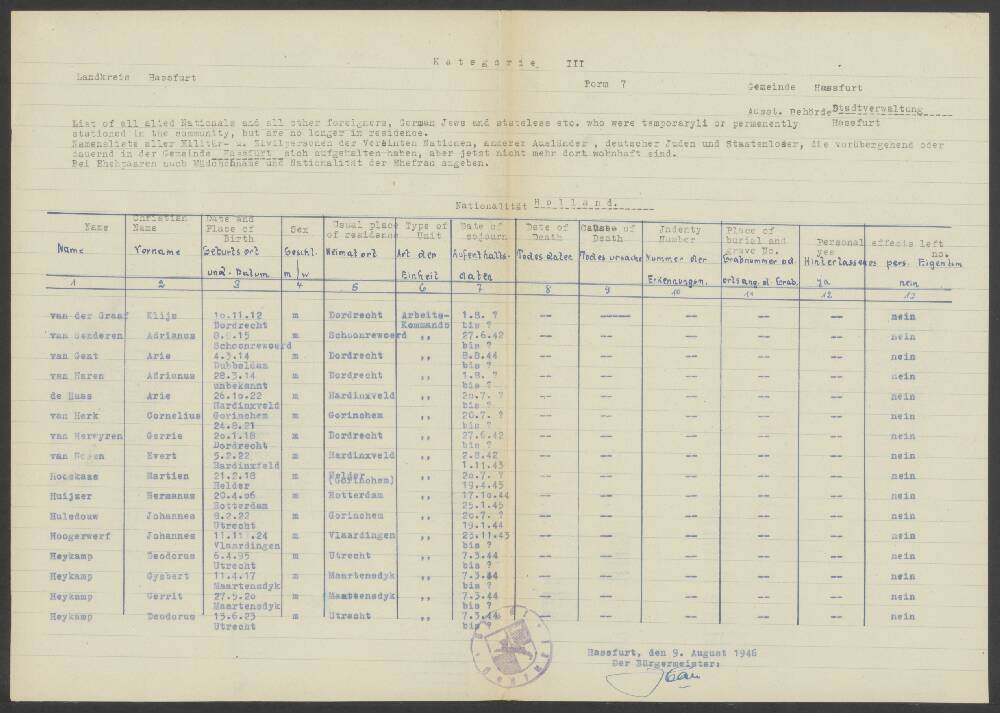 Kategorie III
Landkreis Hassfurt
Form 7
Gemeinde Hassfurt
Ausst. Behörde Stadtverwaltung
Hassfurt
List of all Allied Nationals and all other foreigners, German Jews and stateless etc. who were temporaryli or permanently
stationed in the community, but are no longer in residence.
Namensliste aller Militär- u. Zivilpersonen der Vereinten Nationen, anderer Ausländer, deutscher Juden und Staatenloser, die vorübergehend oder
dauernd in der Gemeinde Hassfurt sich aufgehalten haben, aber jetzt nicht mehr dort wohnhaft sind.
Bei Ehepaaren auch Mädchenname und Nationalität der Ehefrau angeben.
Nationalität Holland.
Name Christian Name Date and Place of Birth Sex Usual place of residence Type of Unit Date of sojourn Date of Death Cause of Death Indenty Number Place of burial and grave No. Personal effects left yes no.
Name Vorname Geburtsort und-Datum Geschl. m/w Heimatort Art der Einheit Aufenthalts-daten Todesdaten Todesursache Nummer der Erkennungen. Grabnummer od. ertsang. d. Grab. Hinterlassenes pers. Eigentum ja nein
1 2 3 4 5 6 7 8 9 10 11 12 13
van der Graaf Klijs 10.11.12 m Dordrecht Arbeits- 1.8. ? -- -- -- -- -- nein
Dordrecht Kommando bis ?
van Genderen Adrianus 8.9.15 m Schoonrewoerd ,, 27.6.42 -- -- -- -- -- nein
Schoonrewoerd bis ?
van Gent Arie 4.3.14 m Dordrecht ,, 8.8.44 -- -- -- -- -- nein
Dubbeldam bis ?
van Haren Adrianus 28.3.14 m Dordrecht ,, 1.8. ? -- -- -- -- -- nein
unbekannt bis ?
de Haas Arie 26.10.22 m Hardinxveld ,, 20.7. ? -- -- -- -- -- nein
Hardinxveld bis ?
van Herk Cornelius Gorinchem m Gorinchem ,, 20.7. ? -- -- -- -- -- nein
24.8.21 bis ?
van Gerrie 20.1.18 m Dordrecht ,, 27.6.42 -- -- -- -- -- nein
Dordrecht bis ?
van Evert 5.2.22 m Hardinxveld ,, 2.8.42 -- -- -- -- -- nein
Hardinxfeld 1.11.43
Martien 21.2.18 m Helder ,, 20.7. ? -- -- -- -- -- nein
Helder (Gorinchem) 19.4.45
Huijzer Hermanus 20.4.06 m Rotterdam ,, 17.10.44 -- -- -- -- -- nein
Rotterdam 25.1.45
Hulsdouw Johannes 8.2.22 m Gorinchem ,, 20.7. ? -- -- -- -- -- nein
Utrecht 19.1.44
Hoogerwerf Johannes 11.11.24 m Vlaardingen ,, 23.11.43 -- -- -- -- -- nein
Vlaardingen bis ?
Heykamp Deodorus 6.4.95 m Utrecht ,, 7.3.44 -- -- -- -- -- nein
Utrecht bis ?
Heykamp Gysbert 11.4.17 m Maartensdyk ,, 7.3.44 -- -- -- -- -- nein
Maartensdyk bis ?
Heykamp Gerrit 27.5.20 m Maatsensdyk ,, 7.3.44 -- -- -- -- -- nein
Maartensdyk bis ?
Heykamp Deodorus 15.6.23 m Utrecht ,, 7.3.44 -- -- -- -- -- nein
Utrecht bis ?
Hassfurt, den 9. August 1946
Der Bürgermeister: